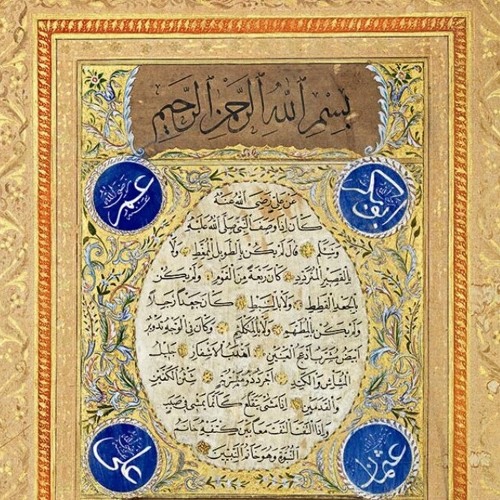 بسم الله الرحمن الرحيم
ابو بكر
عمر رضي الله عنه
عن علي رضي الله عنه
كان اذا وصف النبي صلى الله عليه
وسلم قال لم يكن بالطويل الممغط ولا
بالقصير المتردد كان ربعة من القوم ولم يكن
بالجعد القطط ولا بالسبط كان جعدا رجلا
ولم يكن بالمطهم ولا بالمكلثم وكان في الوجه تدوير
ابيض مشرب ادعج العينين اهدب الاشفار جليل
المشاش والكتد اجرد ذو مسربة شثن الكفين
والقدمين اذا مشى تقلع كانما يمشي في صبب
واذا التفت التفت معا بين كتفيه خاتم
النبوة وهو خاتم النبيين
عثمان
علي